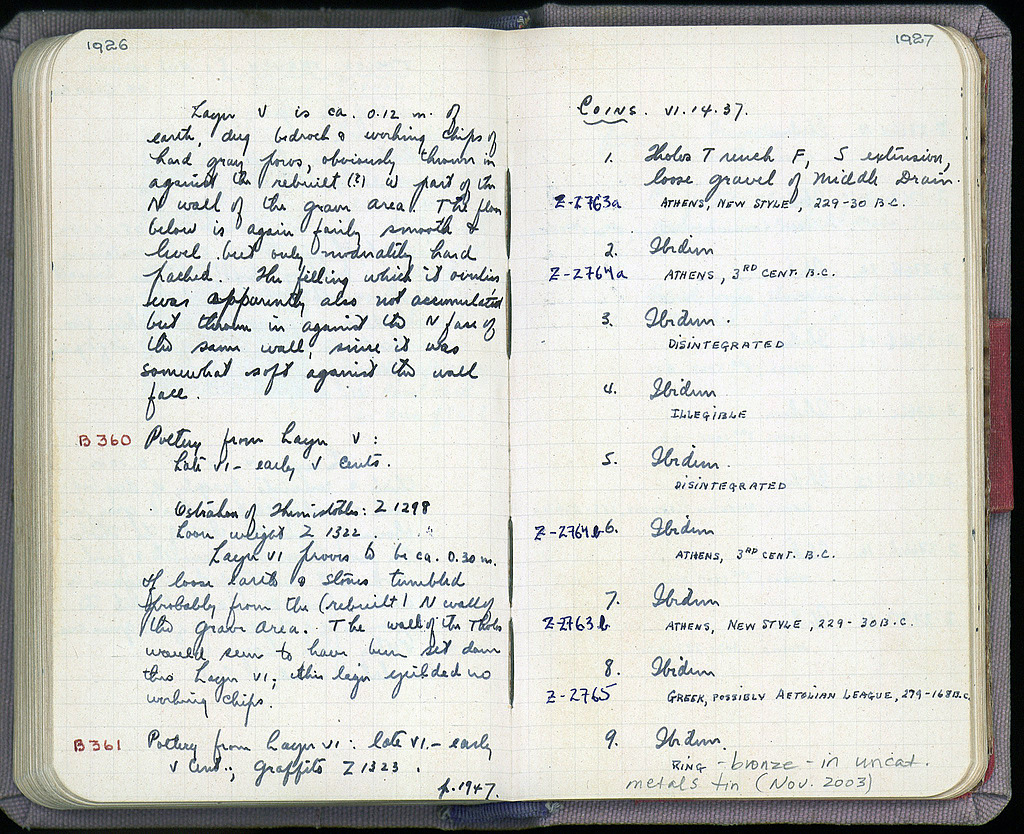 1926
Layer V is ca. 0.12 m. of
earth, dug bedrock & working chips of
hard gray poros, obviously thrown in
against the rebuilt (?) W part of the
N wall of the grave area. The floor
below is again fairly smooth &
level but only moderately hard
packed. The filling which it overlies
was apparently also not accumulated
but thrown in against the N face of
the same wall, since it was
somewhat soft against the wall
face.
B 360 Pottery from Layer V:
Late VI - early V cents.
Ostrakon of Themistokles: Z 1298
Loom weight Z 1322.
Layer VI proves to be ca. 0.30 m.
of loose earth & stones tumbled
probably from the (rebuilt) N wall of
the grave area. The wall of the Tholos
would seem to have been set down
thro Layer VI; this layer yielded no
working chips.
B 361 Pottery from Layer VI: late VI - early
V cent.; graffito Z 1323.
p. 1947.
1927
COINS. VI.14.37.
1. Tholos Trench F, S extension,
loose gravel of Middle Drain.
Z-2763a ATHENS, NEW STYLE, 229-30 B.C.
2. Ibidum
Z-2764a ATHENS, 3RD CENT. B.C.
3. Ibidum.
DISINTEGRATED
4. Ibidum
ILLEGIBLE
5. Ibidum.
DISINTEGRATED
Z-2764b 6. Ibidum
ATHENS, 3RD CENT. B.C.
7. Ibidum
Z-2763b ATHENS, NEW STYLE, 229-30 B.C.
8. Ibidum
Z-2765 GREEK, POSSIBLY AETOLIAN LEAGUE, 279-168 B.C.
9. Ibidum.
RING - bronze - in uncat.
metals tin (Nov. 2003)